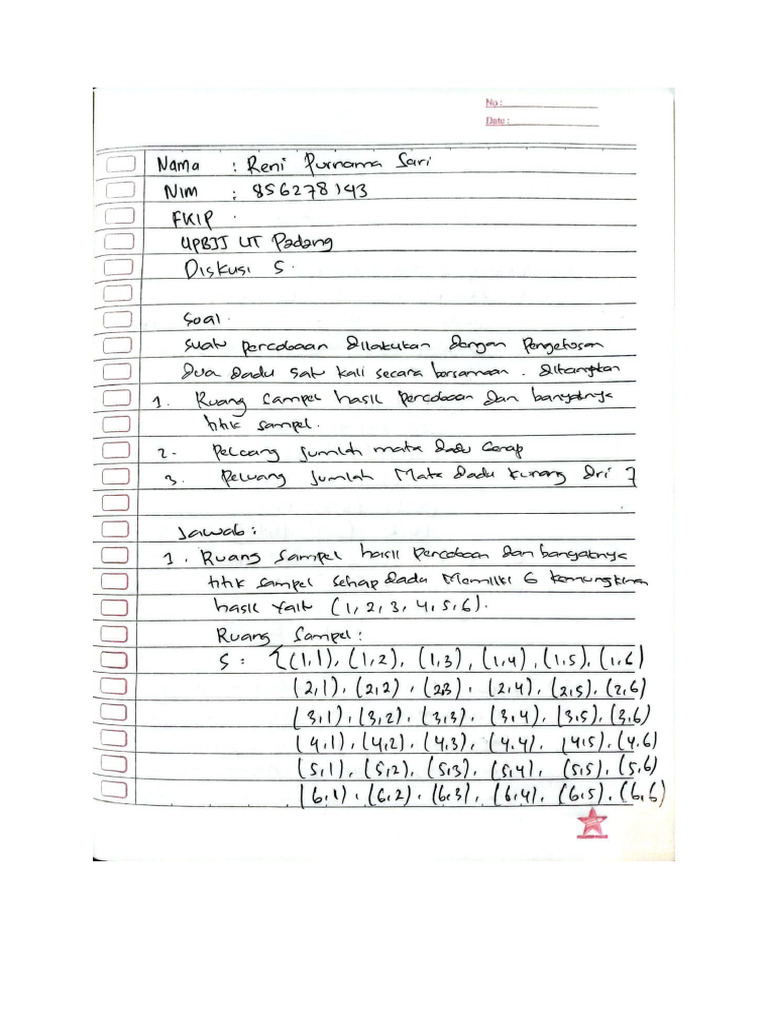 No :
Date :
Nama : Reni Purnama Sari
NIM : 856278143
FKIP .
UPBJJ UT Padang
Diskusi 5.
Soal.
Suatu percobaan dilakukan dengan Pengetosan
dua dadu satu kali secara bersamaan. ditanyakan
1. Ruang sampel hasil percobaan dan banyaknya
titik sampel.
2. Peluang jumlah mata dadu Genap
3. Peluang jumlah Mata dadu kurang dri 7
Jawab :
1. Ruang sampel hasil percobaan dan banyaknya
titik sampel setiap dadu Memiliki 6 kemungkinan
hasil Yaitu (1,2,3,4,5,6).
Ruang Sampel :
S : {(1,1), (1,2), (1,3), (1,4), (1,5), (1,6)
(2,1), (2,2), (2,3), (2,4), (2,5), (2,6)
(3,1), (3,2), (3,3), (3,4), (3,5), (3,6)
(4,1), (4,2), (4,3), (4,4), (4,5), (4,6)
(5,1), (5,2), (5,3), (5,4), (5,5), (5,6)
(6,1), (6,2), (6,3), (6,4), (6,5), (6,6)